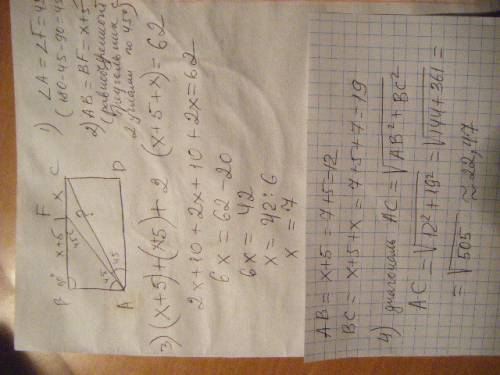 B x+5 F x C
90° 45
?
45 45
A D
1) ∠A = ∠F = 45
(180-45-90=45
2) AB = BF = x+5
(равнобедренный
треугольник с
2 углами по 45°)
3) (x+5)+(x+5)+2(x+5+x)=62
2x+10+2x+10+2x=62
6x=62-20
6x=42
x=42:6
x=7
AB = x+5 = 7+5=12
BC = x+5+x = 7+5+7=19
4) диагональ AC = √AB²+BC²
AC = √12²+19² = √144+361 =
= √505 ≈ 22,47